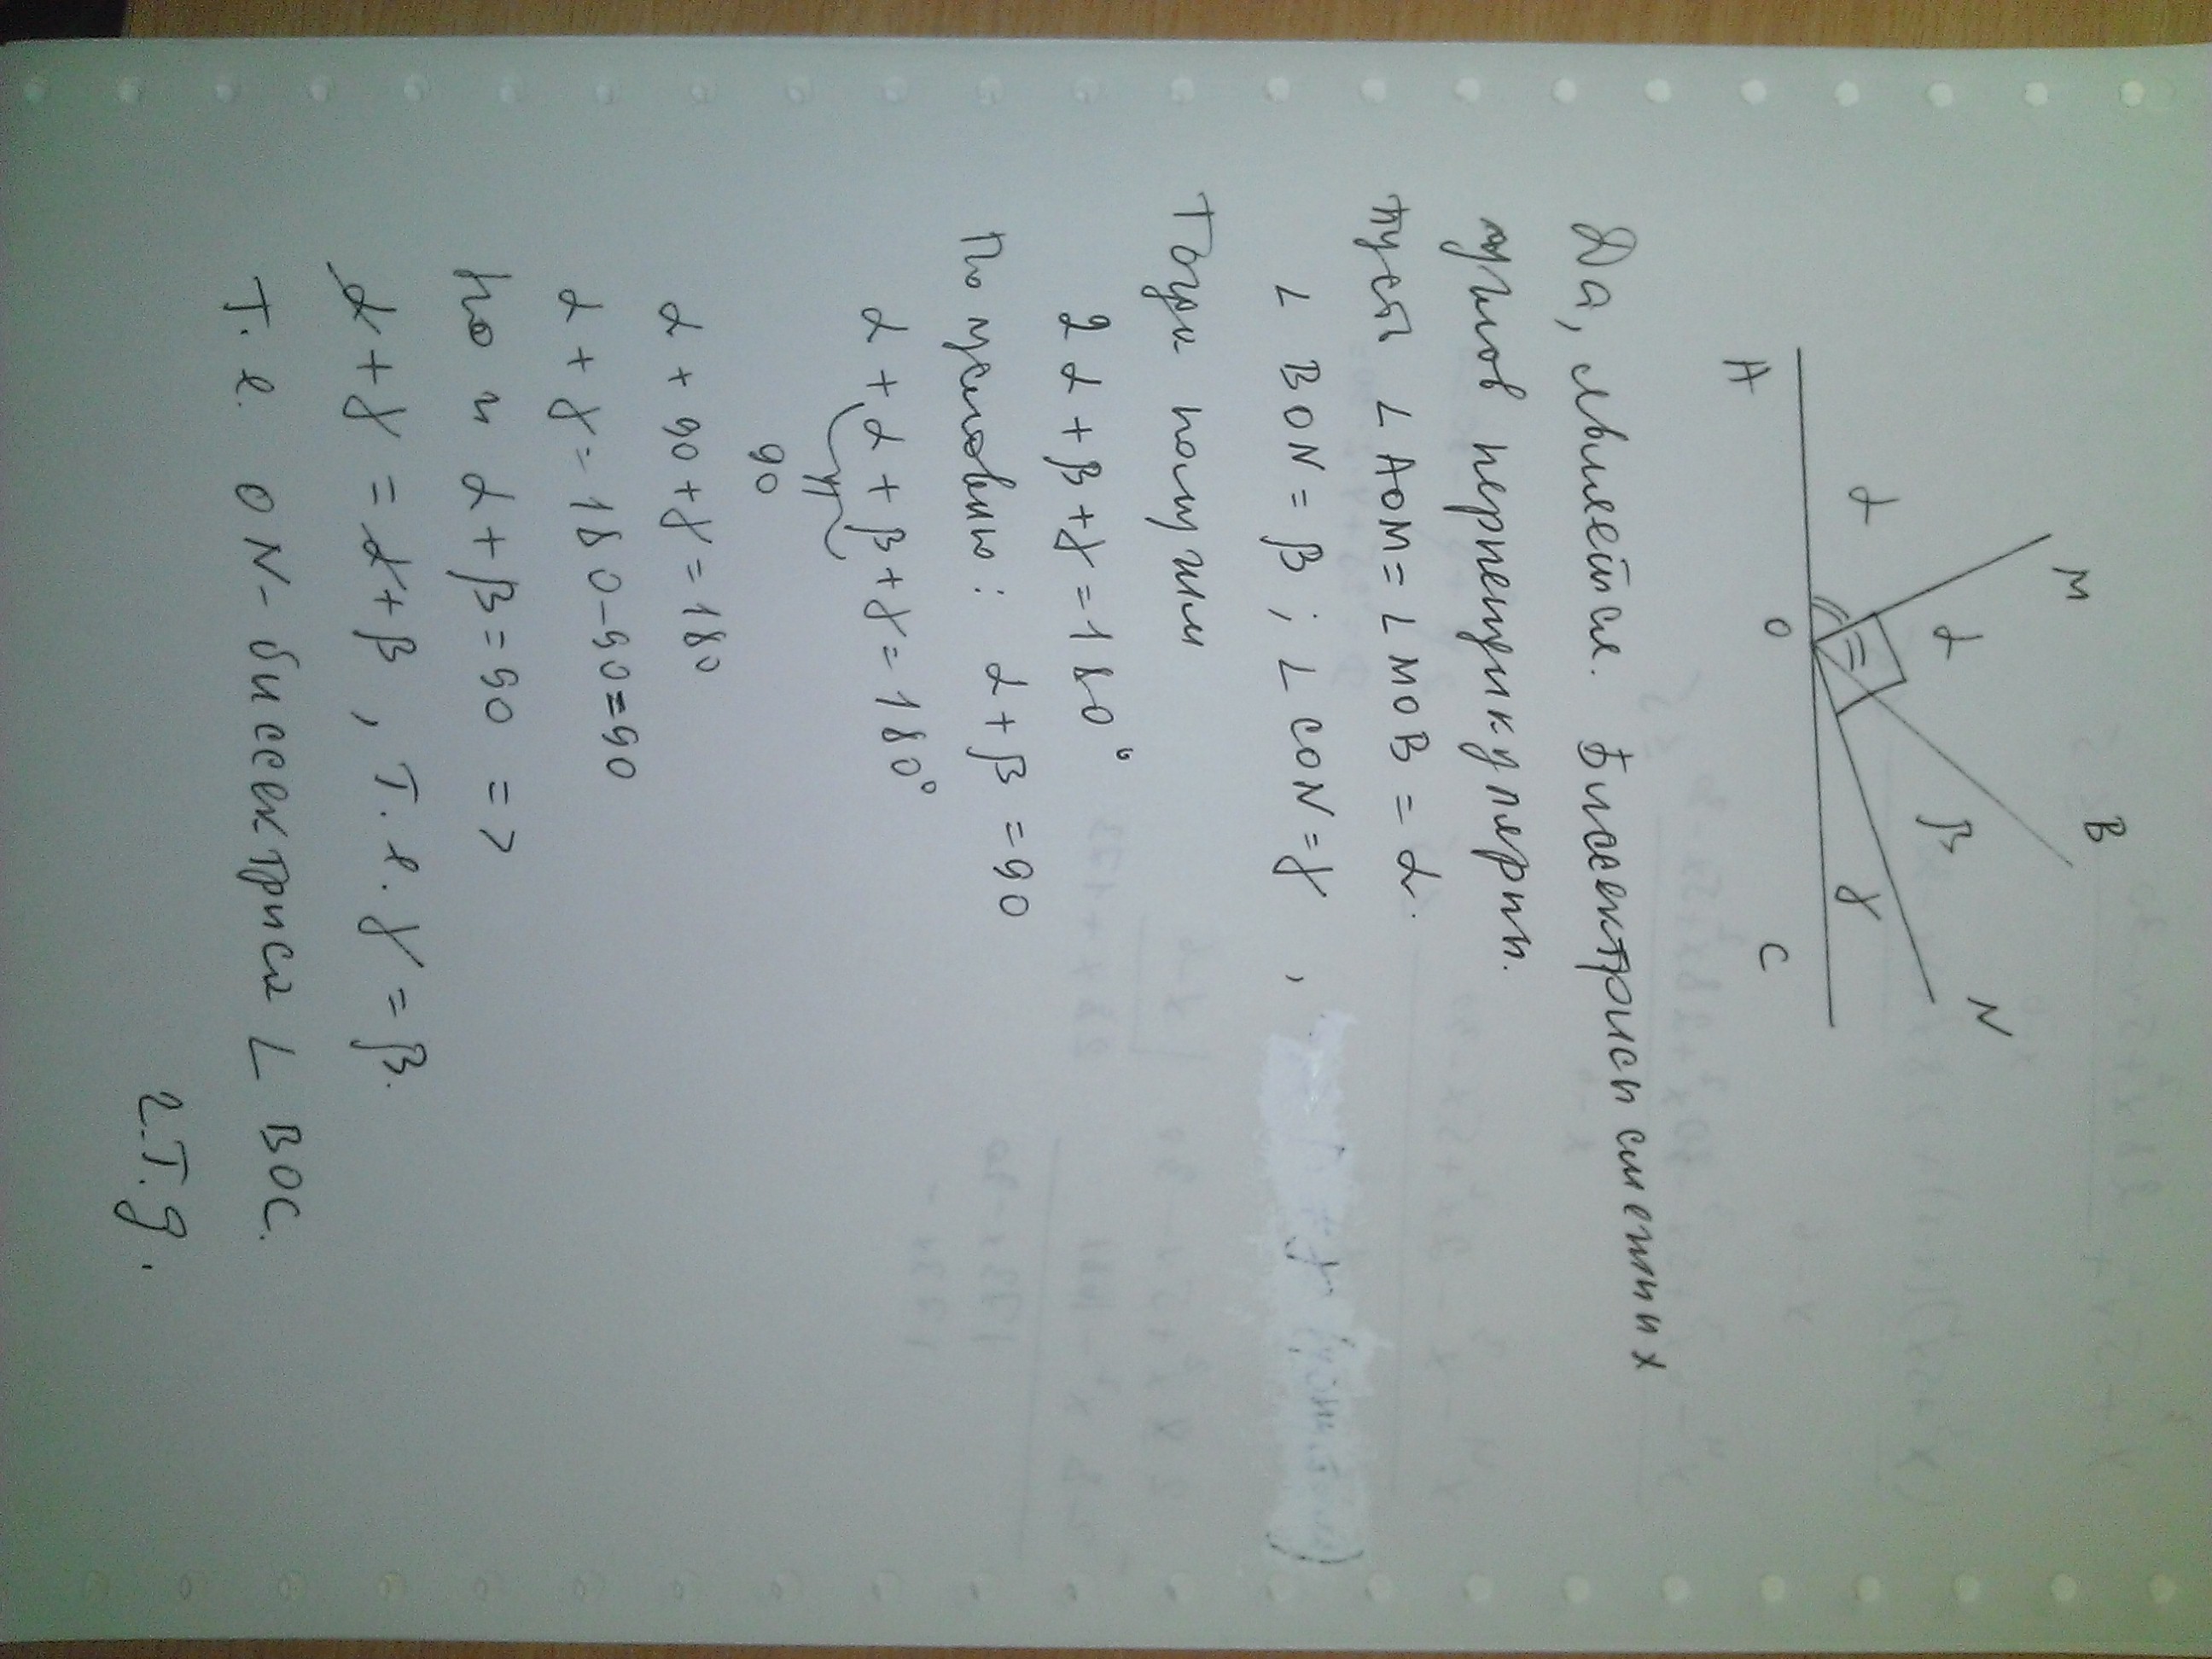 M B N
α α β γ
A O C
Да, является. Биссектрисы смежных
углов перпендикулярны.
Пусть ∠ AOM = ∠ MOB = α.
∠ BON = β ; ∠ CON = γ ,
Тогда получим
2α + β + γ = 180°
По условию: α + β = 90
α + α + β + γ = 180°
90
α + 90 + γ = 180
α + γ = 180 - 90 = 90
Но и α + β = 90 =>
α + γ = α + β , т.е. γ = β.
Т.е. ON - биссектриса ∠ BOC.
ч.т.д.